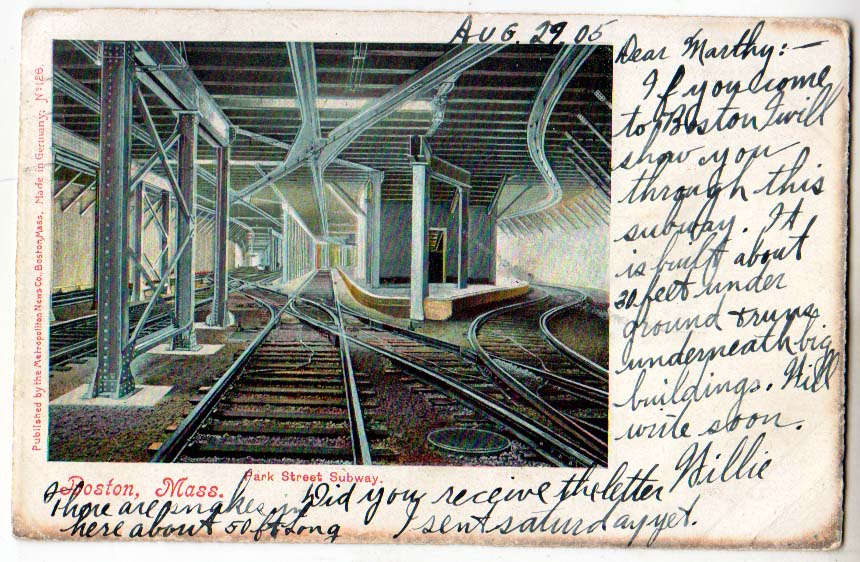 AUG. 29 05
Dear Marthy:—
If you come
to Boston I will
show you
through this
subway. It
is built about
20 feet under
ground & runs
underneath big
buildings. Will
write soon.
Willie
Published by the Metropolitan News Co., Boston, Mass. Made in Germany. No. 126.
Boston, Mass.
Park Street Subway.
There are snakes in
here about 50 ft long
Did you receive the letter
I sent saturday yet.